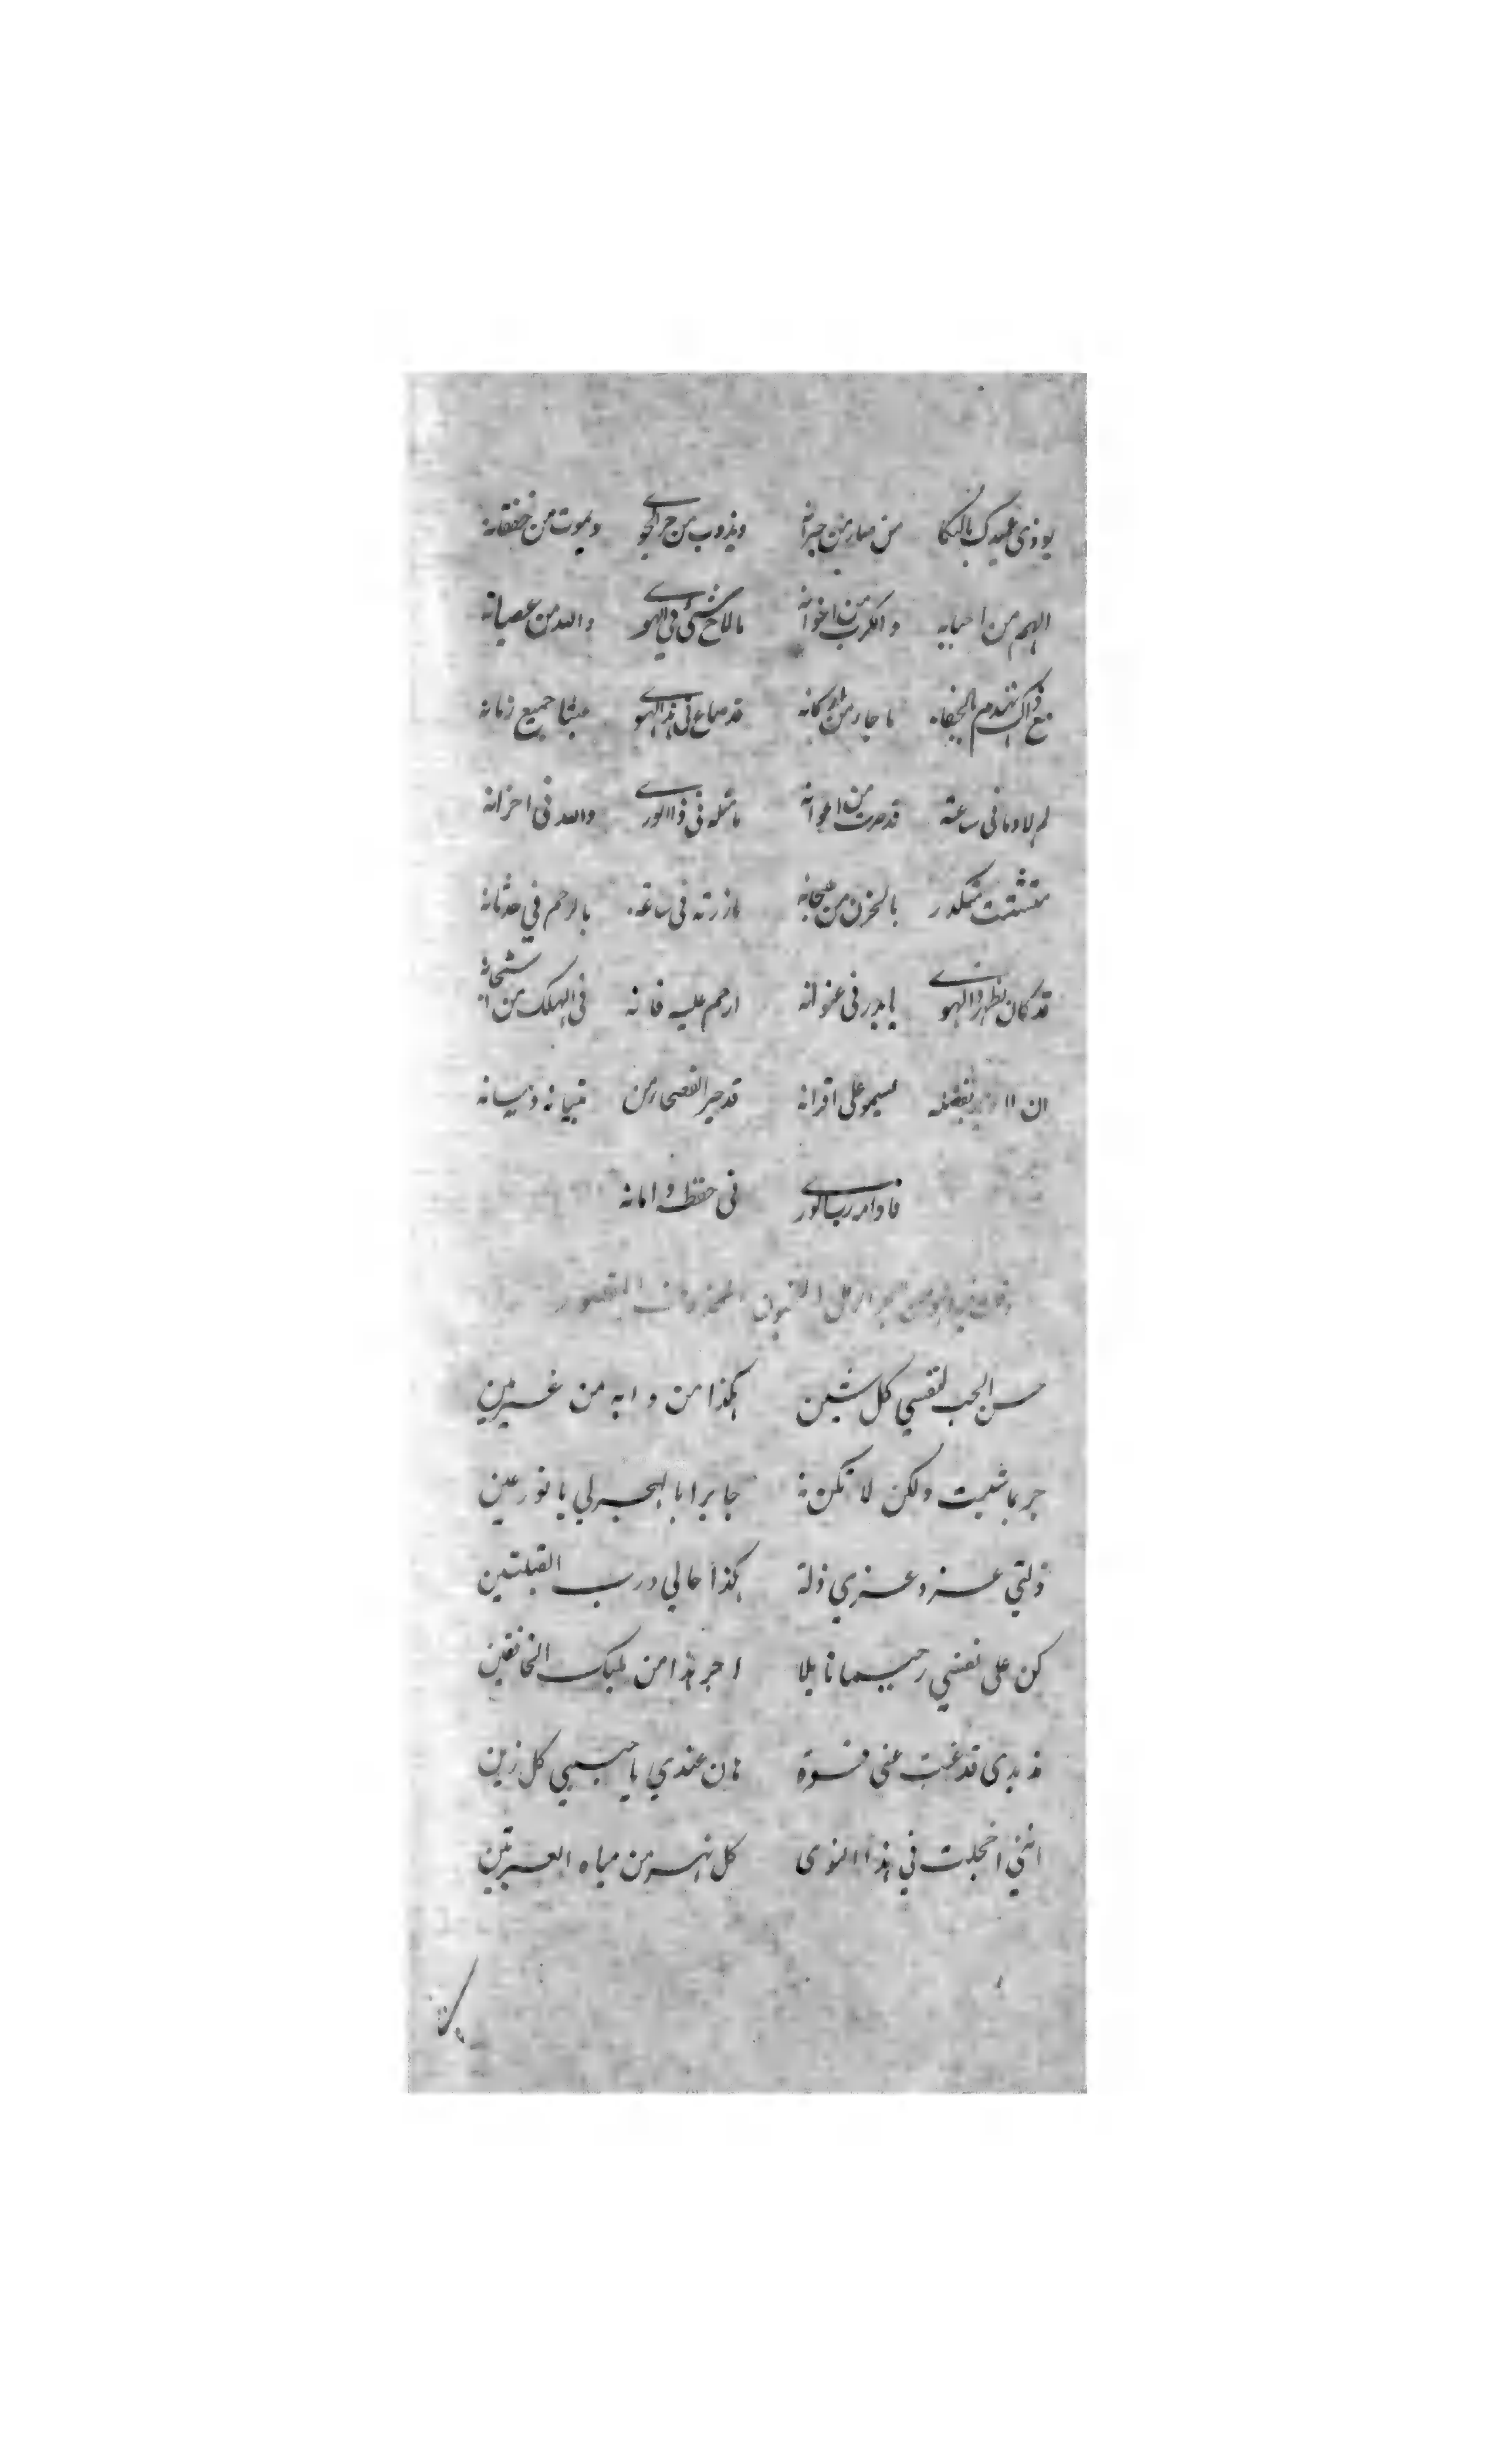 يوذي عبيدك بالبكا من صار من جيرانه ويذوب من حر الجوى ويموت من خفقانه
الهم من احبابه والكرب من اخوانه مالاح شئ في الهوى والله من عصيانه
مع ذاك تهدم بالجفا ما جار من اركانه قد ضاع في هذا الهوى عبثا جميع زمانه
في ساعة قد صرت من اعوانه ما مثله في ذا الورى والله في احزانه
متشتت متكدر بالحزن من هازرته في ساعة بالرحم في حدثانه
قد كان يظهر ذا الهوى يا بدر في عنوانه ارحم عليه فانه في الهلك من
ان بفضله يسمو على اقرانه قد حير الفصحاء من تبيانه وبيانه
فادامه رب الورى في حفظه وامانه
حسن الحب لنفسي كل شين هكذا من دابه من غير مين
جر بما شيت ولكن لا تكن جايرا بالهجر لي يا نور عين
ذلتي عز وعزي ذلة هكذا حالي ورب القبلتين
كن على نفسي رحيما نايلا اجر هذا من مليك الخافقين
قد غبت عني هان عندي يا حبيبي كل زين
انني اخجلت في هذا النوى كل نهر من مياه